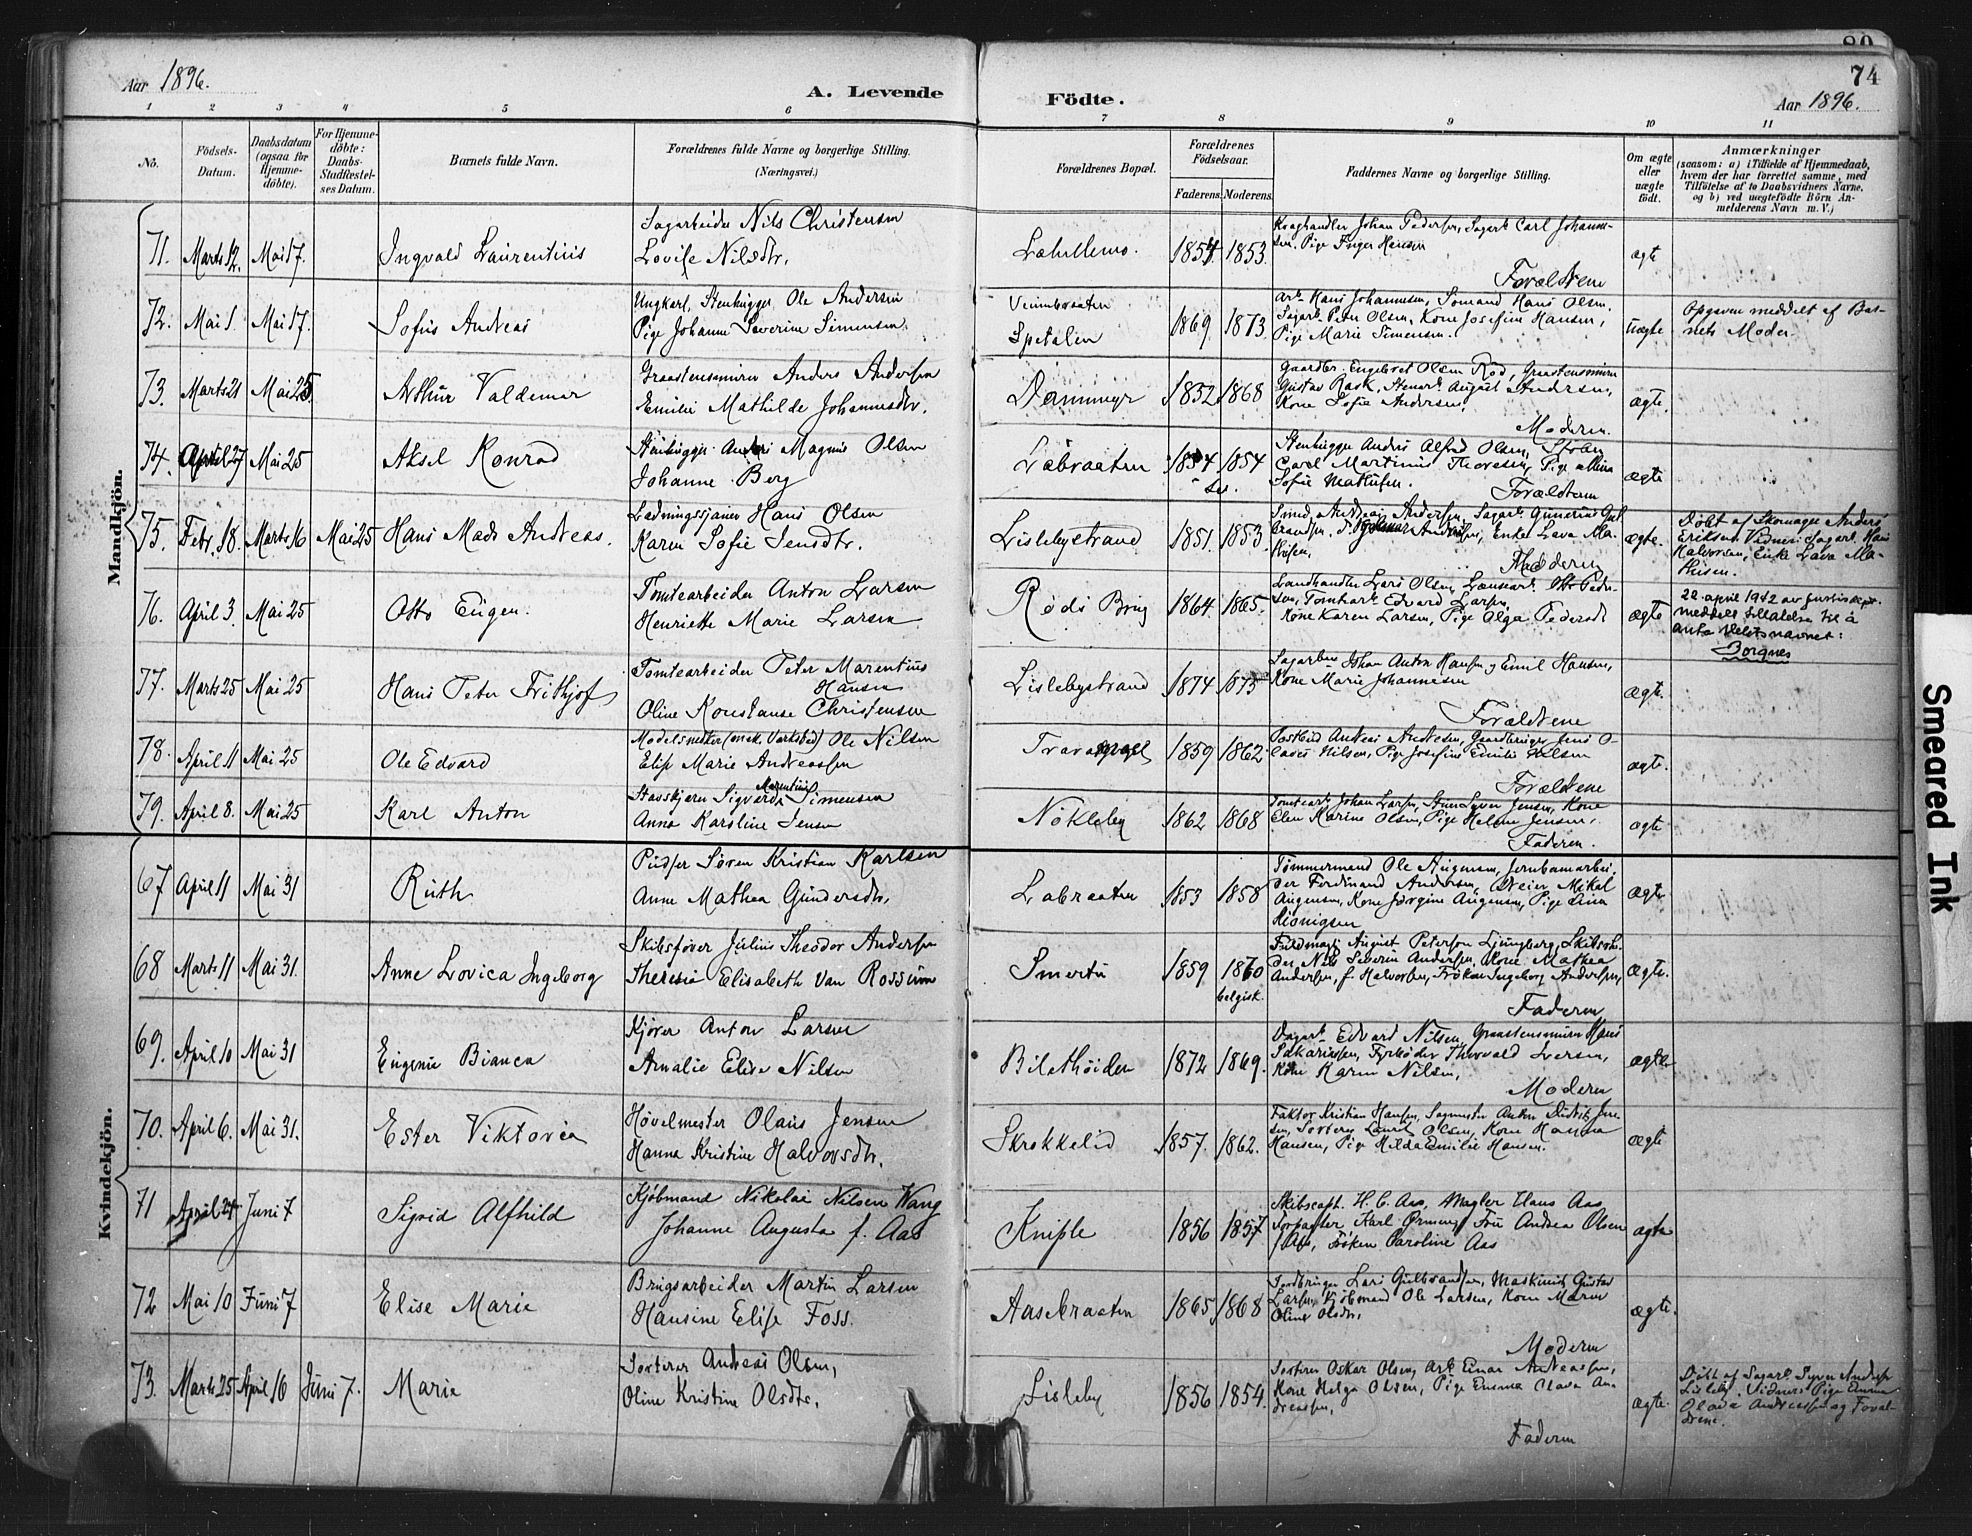 80
74
Aar 1896.
A. Levende Födte.
Aar 1896.
1 2 3 4 5 6 7 8 9 10 11
No.
Födsels-Datum.
Daabsdatum (ogsaa for Hjemme-döbte).
For Hjemme-döbte: Daabs-Stadfæstel-ses Datum.
Barnets fulde Navn.
Forældrenes fulde Navne og borgerlige Stilling. (Næringsvei.)
Forældrenes Bopæl.
Forældrenes Födselsaar.
Faderens. Moderens.
Faddernes Navne og borgerlige Stilling.
Om ægte eller uægte födt.
Anmærkninger
(saasom: a) i Tilfælde af Hjemmedaab,
hvem der har forrettet samme, med
Tilföielse af to Daabsvidners Navne,
og b) ved uægtefödte Börn An-
melderens Navn m. V.)
Mandkjön.
71. Marts 12. Mai 17. Ingvald Laurentius
Sagarbeider Nils Christensen
Lovise Nilsdtr.
1854 1853.
Kraghandler Johan Pedersen, Sagarb. Carl Johanne-
sen. Pige Inger Hansen
Forældrene
ægte
72. Mai 1. Mai 17. Sofus Andreas
Ungkarl, Stenhugger Ole Andersen
Pige Johanne Severine Simensen.
Spetalen
1869 1873.
Arb. Hans Johannesen, Sömand Hans Olsen.
Sagarb. Peter Olsen, Kone Josefine Hansen,
Pige Marie Simensen.
uægte
Opgaven meddelt af Bar-
nets Moder.
73. Marts 21 Mai 25. Arthur Valdemar
Graastensmurer Anders Andersen
Emilie Mathilde Johannesdtr.
Dammyr
1852 1868
Gaardbr. Engebret Olsen Röd, Graastensmurer
Gustav Rask, Stenarb. August Andersen,
Kone Sofie Andersen.
Moderen.
ægte.
74. April 27 Mai 25 Aksel Konrad
Stenhugger Anders Magnus Olsen
Johanne Berg
Labraaten
1854 1854
Stenhugger Anders Alfred Olsen,
Carl Martinius Thoresen, Pige Mina
Sofie Mathisen.
Forældrene
ægte
75. Febr. 18. Marts 16 Mai 25 Hans Mads Andreas.
Ledningsejer Hans Olsen
Karen Sofie Jensdtr.
Lislebystrand
1851. 1853.
Smed Andreas Andersen, Sagarb. Gunerius Gul-
brandsen, Enke Lava Ma-
thisen.
Moderen
ægte.
Döbt af Skomager Anders
Eriksen. Vidner: Sagarb. Hans
Halvorsen, Enke Lava Ma-
thisen.
76. April 3. Mai 25 Otto Eugen.
Tomtearbeider Anton Larsen
Henriette Marie Larsen
Röds Brug
1864. 1865.
Landhandler Lars Olsen, Lænsearb. Otto Peder-
sen, Tomtearb. Edvard Larsen,
Kone Karen Larsen, Pige Olga Pedersdt
ægte
22. april 1942 av justisdept.
meddelt tillatelse til å
anta slektsnavnet:
Borgnes
77. Marts 25 Mai 25 Hans Peter Frithjof
Tomtearbeider Peter Marentius
Hansen
Oline Konstanse Christensen
Lislebystrand
1874 1875
Sagarbeu Johan Anton Hansen og Emil Hansen,
Kone Marie Johannesen
Forældrene
ægte.
78. April 11 Mai 25 Ole Edvard
Modelsnekker (mek. Værksted) Ole Nilsen
Elise Marie Andreassen
1859 1862
Postbud Andreas Andresen, Gaardbruger Jens O-
laves Nilsen, Pige Josefine Emilie Nilsen
Forældrene
ægte.
79. April 8. Mai 25 Karl Anton
Stavskjærer Sigvard Marentius Simensen
Anna Karoline Jensen
Nökleby
1862 1868
Tomtearb. Johan Larsen, Jensen, Kone
Elen Karine Olsen, Pige Helene Jensen.
Faderen.
ægte
Kvindekjön.
67. April 11 Mai 31 Ruth
Pudser Sören Kristian Karlsen
Anne Mathea Gundersdtr.
Labraaten
1853 1858
Tömmermand Ole Augensen, Jernbanearbei-
der Ferdinand Andersen, Veier Mikal
Augensen, Kone Jörgine Augensen, Pige Lina
ægte
68 Marts 11 Mai 31. Anne Lovica Ingeborg
Skibsförer Julius Theodor Andersen
Theresia Elisabeth van Rossum
Smertu
1859 1860
belgisk.
August Peterson Ljungberg, Skibsre-
der Nils Severin Andersen, Kone Mathea
Andersen, f. Halvorsen, Fröken Ingeborg Andersen,
Faderen
ægte.
69. April 10 Mai 31 Eugenie Bianca
Kjörer Anton Larsen
Amalie Elise Nilsen
Biletöiden
1872 1869.
Dagarb. Edvard Nilsen, Graastensmurer Hans
Sakariassen, Fyrböder Thorvald Iversen,
Kone Karen Nilsen.
Moderen
ægte
70. April 6. Mai 31. Ester Viktoria
Hövelmester Olaus Jensen
Hanna Kristine Halvorsdtr.
Skrokkelid
1857. 1862.
Faktor Kristian Hansen, Sagmester Anton Didrik Jen-
sen, Sorterer Laurits Olsen, Kone Hanna
Hansen, Pige Hilda Emilie Hansen.
ægte
71 April 24 Juni 7 Sigrid Alfhild
Kjöbmand Nikolai Nilsen Wang
Johanne Augusta f. Aas
Kniple
1856 1857
Skibscapt. H. C. Aas, Mægler Claus Aas
Forpagter Karl Örmen, Fru Andrea Olsen
f. Aas, Fröken Caroline Aas
ægte
72 Mai 10 Juni 7 Elise Marie
Brugsarbeider Martin Larsen
Hansine Elise Foss.
Aasebraaten
1865 1868
Jordbruger Lars Gulbrandsen, Maskinist Gustav
Larsen, Kjöbmand Ole Larsen, Kone Maren
Oline Olsdtr.
Moderen
ægte.
73. Marts 25 April 16 Juni 7. Marie
Sorterer Andreas Olsen,
Oline Kristine Olsdtr.
Lisleby
1856 1854.
Sorterer Oskar Olsen, Arb. Einar Andreassen,
Kone Helga Olsen, Pige Emma Olava An-
dreassen,
Faderen
ægte.
Döbt af Sagarb. Syver Anders
Lisleby. Vidner: Pige Emma
Olava Andreassen og Foræl-
drene.
Smeared Ink